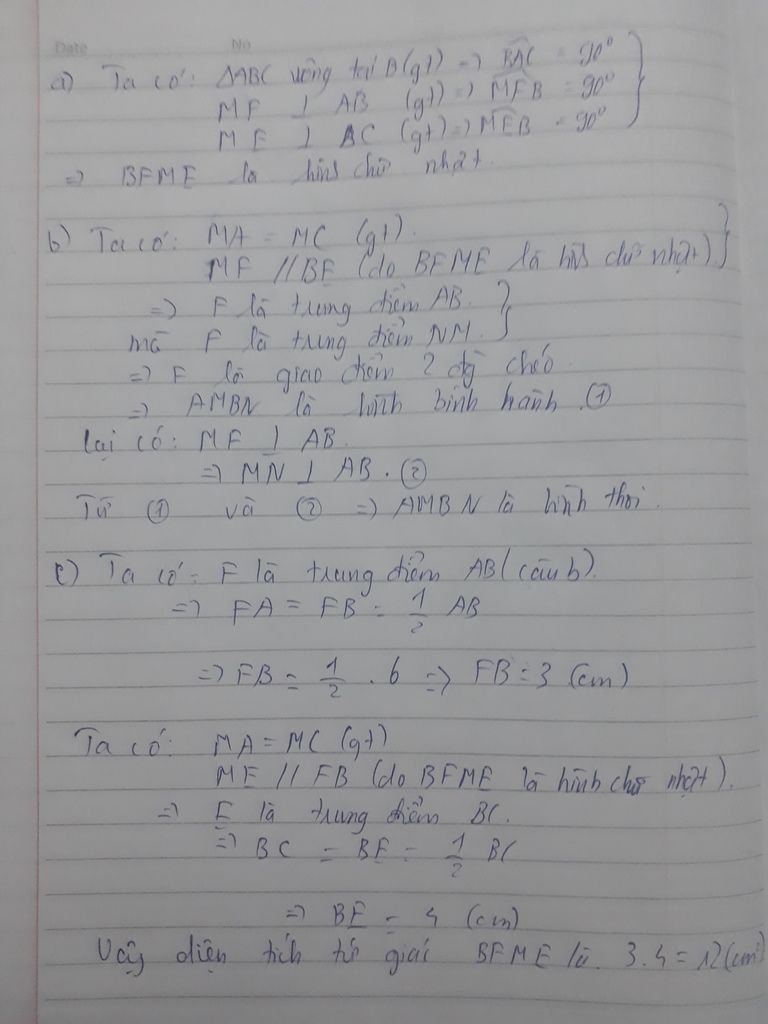 Date No
a) Ta có: ΔABC vuông tại B (gt) => BAC = 90°
MF ⊥ AB (gt) => MFB = 90°
ME ⊥ BC (gt) => MEB = 90°
=> BFME là hình chữ nhật.
b) Ta có: MA = MC (gt).
MF // BE (do BFME là hình chữ nhật)
=> F là trung điểm AB.
mà F là trung điểm NM.
=> F là giao điểm 2 đg chéo.
=> AMBN là hình bình hành. ①
lại có: MF ⊥ AB.
=> MN ⊥ AB. ②
Từ ① và ② => AMBN là hình thoi.
c) Ta có: F là trung điểm AB (câu b).
=> FA = FB = 1/2 AB
=> FB = 1/2 . 6 => FB = 3 (cm)
Ta có: MA = MC (gt)
ME // FB (do BFME là hình chữ nhật).
=> E là trung điểm BC.
=> BC = BE = 1/2 BC
=> BE = 4 (cm)
Vậy diện tích tứ giác BFME là 3.4 = 12 (cm²)